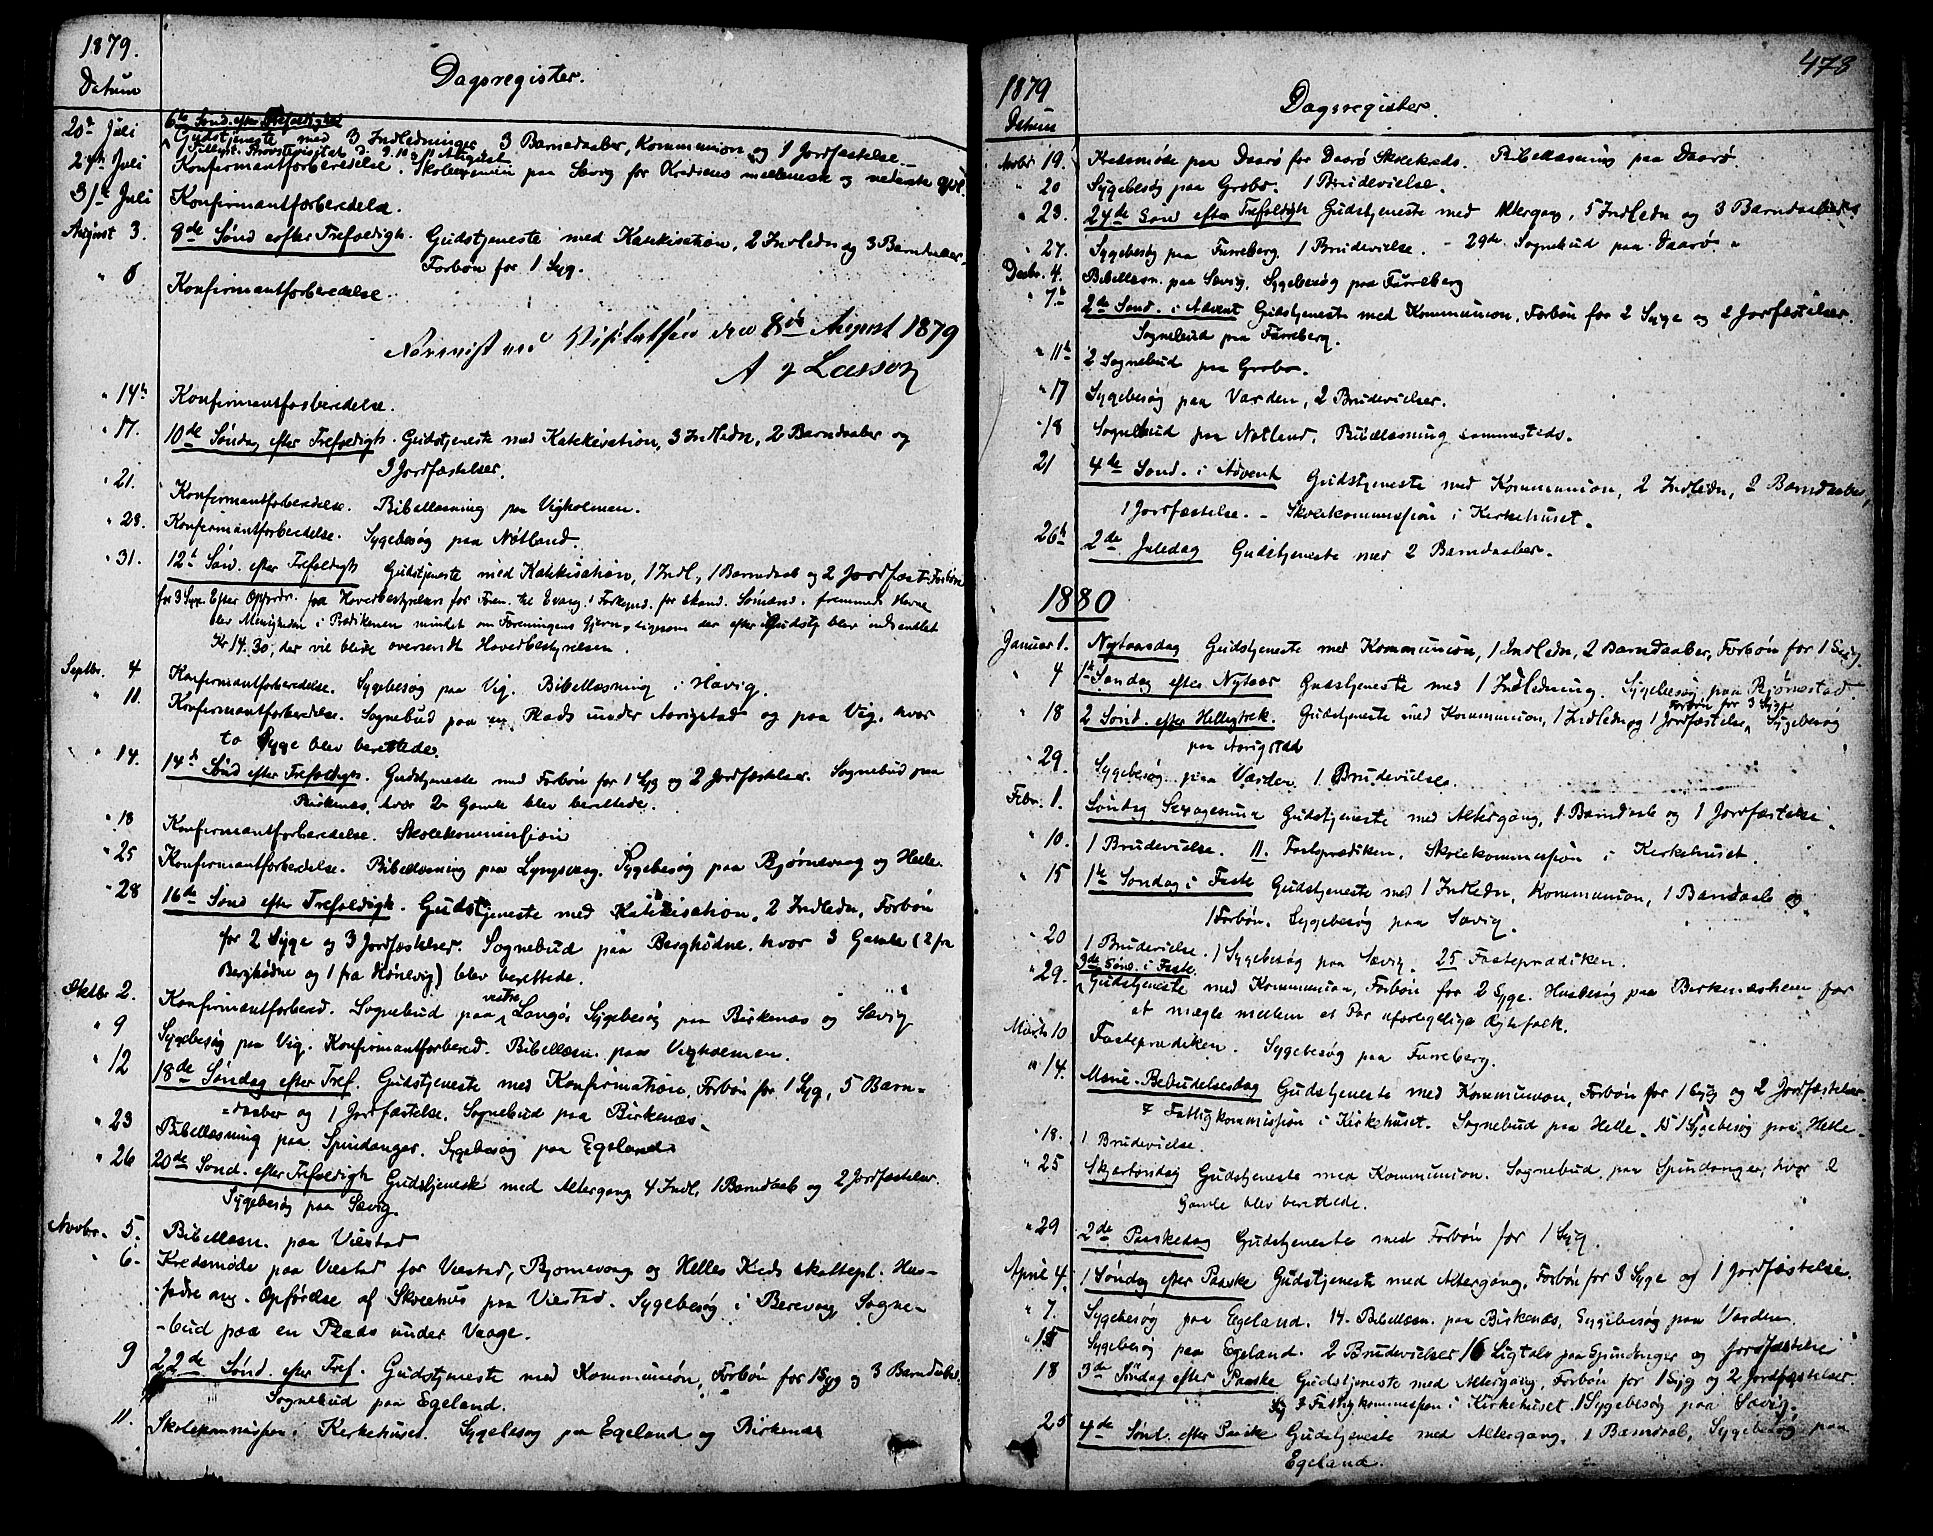 1879.
Datum
Dagsregister.
20de Juli 6te Sønd. efter Trefoldigh.
Gudstjeneste med 3 Indledninger 3 Barnedaaber, Kommunion og 1 Jordfæstelse.
24de Juli Konfirmantforberedelse. Skoleexamen paa Sævig for Kredsens mellemste og nederste
31te Juli Konfirmantforberedelse.
August 3. 8de Sønd efter Trefoldigh. Gudstjeneste med Katekisation, 2 Indledn og 3 Barndaaber.
Forbøn for 1 Syg.
Konfirmantforberedelse.
Nærværet ved Visitatsen den 8de August 1879
A J Lasson
" 14de Konfirmantforberedelse.
" 17. 10de Søndag efter Trefoldigh. Gudstjeneste med Katekisation, 3 Indledn, 2 Barndaaber og
Jordfæstelser.
" 21. Konfirmantforberedelse. Bibellæsning paa Vigholmen.
" 28. Konfirmantforberedelse. Sygebesøg paa Nøtland.
" 31. 12te Sønd. efter Trefoldigh Gudstjeneste med Katekisation, 1 Indl, 1 Barndaab og 2 Jordfæst. Forbøn
for 3 Syge. Efter Opfordr. fra Hovedbestyrelsen for Foren. til Evang. Forkynd. for skand. Sømænd i fremmede Havne
blev Menigheden i Prædikenen mindet om Foreningens Gjern., ligesom der efter Gudstj blev indsamlet
Kr 14.30, der vil blive oversendt Hovedbestyrelsen.
Septbr. 4 Konfirmantforberedelse. Sygebesøg paa Vig. Bibellæsning i Havig.
" 11. Konfirmantforberedelse. Sognebud paa en Plads under Aarigstad og paa Vig, hvor
to Syge blev berettede.
" 14. 14de Sønd efter Trefoldigh. Gudstjeneste med Forbøn for 1 Syg og 2 Jordfæstelser. Sognebud paa
Birkenæs, hvor 2 Gamle blev berettede.
" 18 Konfirmantforberedelse. Skolekommission
" 25 Konfirmantforberedelse. Bibellæsning paa Lyngsvaag. Sygebesøg paa Bjørnevaag og Helle.
" 28 16de Sønd efter Trefoldigh. Gudstjeneste med Katekisation, 2 Indledn, Forbøn
for 2 Syge og 3 Jordfæstelser. Sognebud paa Berghødne, hvor 3 Gamle (2 fra
Berghødne og 1 fra ) blev berettede.
Oktbr 2. Konfirmantforbered. Sognebud paa vestre Langø, Sygebesøg paa Birkenæs og Sævig
" 9 Sygebesøg paa Vig. Konfirmantforbered. Bibellæsn. paa Vigholmen.
" 12 18de Søndag efter Tref. Gudstjeneste med Konfirmation, Forbøn for 1 Syg, 5 Barn-
=daaber og 1 Jordfæstelse. Sognebud paa Birkenæs.
" 23 Bibellæsning paa Spindanger. Sygebesøg paa Egeland.
" 26 20de Sønd. efter Trefoldigh Gudstjeneste med Altergang, 4 Indl, 1 Barndaab og 2 Jordfæstelser.
Sygebesøg paa Sævig.
Novbr. 5. Bibellæsn. paa Viestad
" 6. Kredsmøde paa Viestad for Viestad, Bjørnevaag og Helles Kreds skattepl. Hus-
fædre ang. Opførelse af Skolehus paa Viestad. Sygebesøg i Berevaag Sogne-
-bud paa en Plads under Vaage.
9 22de Sønd. efter Tref. Gudstjeneste med Kommunion, Forbøn for 1 Syg og 3 Barndaaber.
Sognebud paa Egeland.
11. Skolekommission i Kirkehuset. Sygebesøg paa Egeland og Birkenæs
478
1879
Datum
Dagsregister.
Novbr 19. Kredsmøde paa Daarø for Daarø Skolekreds. Bibellæsning paa Daarø.
" 20 Sygebesøg paa Grobo. 1 Brudevielse.
" 23. 24de Sønd efter Trefoldigh Gudstjeneste med Altergang, 5 Indledn og 3 Barndaaber.
" 27. Sygebesøg paa Furreberg. 1 Brudevielse. - 29de Sognebud paa Daarø.
Decbr. 4. Bibellæsn. paa Sævig, Sygebesøg paa Furreberg
" 7de 2de Sønd. i Advent Gudstjeneste med Kommunion, Forbøn for 2 Syge og 2 Jordfæstelser.
Sognebud paa Furreberg.
" 11te 2 Sognebud paa Grobo.
" 17 Sygebesøg paa Varden, 2 Brudevielser.
" 18 Sognebud paa Nøtland. Bibellæsning sammesteds.
21 4de Sønd. i Advent Gudstjeneste med Kommunion, 2 Indledn, 2 Barndaaber,
1 Jordfæstelse. - Skolekommission i Kirkehuset.
26de 2de Juledag Gudstjeneste med 2 Barndaaber.
1880
Januar 1. Nytaarsdag Gudstjeneste med Kommunion, 1 Indledn, 2 Barndaaber, Forbøn for 1 Syg.
" 4 1te Søndag efter Nytaar Gudstjeneste med 1 Indledning. Sygebesøg paa Bjørnestad.
" 18 2 Sønd. efter Helligtrek. Gudstjeneste med Kommunion, 1 Indledn og 1 Jordfæstelse, Forbøn for 3 Syge Sygebesøg
paa Aarigstad
" 29. Sygebesøg paa Varden. 1 Brudevielse.
Febr. 1. Søndag Sexagesima Gudstjeneste med Altergang, 1 Barndaab og 1 Jordfæstelse.
" 10. 1 Brudevielse. 11. Fasteprædiken. Skolekommission i Kirkehuset.
" 15 1te Søndag i Faste Gudstjeneste med 1 Indledn, Kommunion, 1 Barndaab og
1 Forbøn. Sygebesøg paa Sævig.
" 20 1 Brudevielse. 1 Sygebesøg paa Sævig. 25 Fasteprædiken.
" 29. 3de Sønd. i Faste
Gudstjeneste med Kommunion, Forbøn for 2 Syge. Husbesøg paa Birkenæshei for
at mægle mellem et Par uforligelige Ægtefolk.
Marts 10 Fasteprædiken. Sygebesøg paa Furreberg.
" 14. Mariæ Bebudelsesdag Gudstjeneste med Kommunion, Forbøn for 1 Syg og 2 Jordfæstelser.
Fattigkommission i Kirkehuset. Sognebud paa Helle. 15 1 Sygebesøg paa Helle.
" 18. 1 Brudevielse.
" 25 Skjærtorsdag Gudstjeneste med Kommunion. Sognebud paa Spindanger, hvor 2
Gamle blev berettede.
" 29 2de Paaskedag Gudstjeneste med Forbøn for 1 Syg.
April 4. 1 Søndag efter Paaske Gudstjeneste med Altergang, Forbøn for 3 Syge og 1 Jordfæstelse.
" 7. Sygebesøg paa Egeland. 14. Bibellæsn. paa Birkenæs, Sygebesøg paa Varden.
" 15 Sygebesøg paa Egeland. 2 Brudevielser 16 Ligtale paa Spindanger og Jordfæstelse
18 3de Søndag efter Paaske Gudstjeneste med Altergang, Forbøn for 1 Syg og 2 Jordfæstelser.
Fattigkommission i Kirkehuset. 1 Sygebesøg paa Sævig.
25 4de Sønd. efter Paaske Gudstjeneste med Altergang, 1 Barndaab, Sygebesøg paa
Egeland.